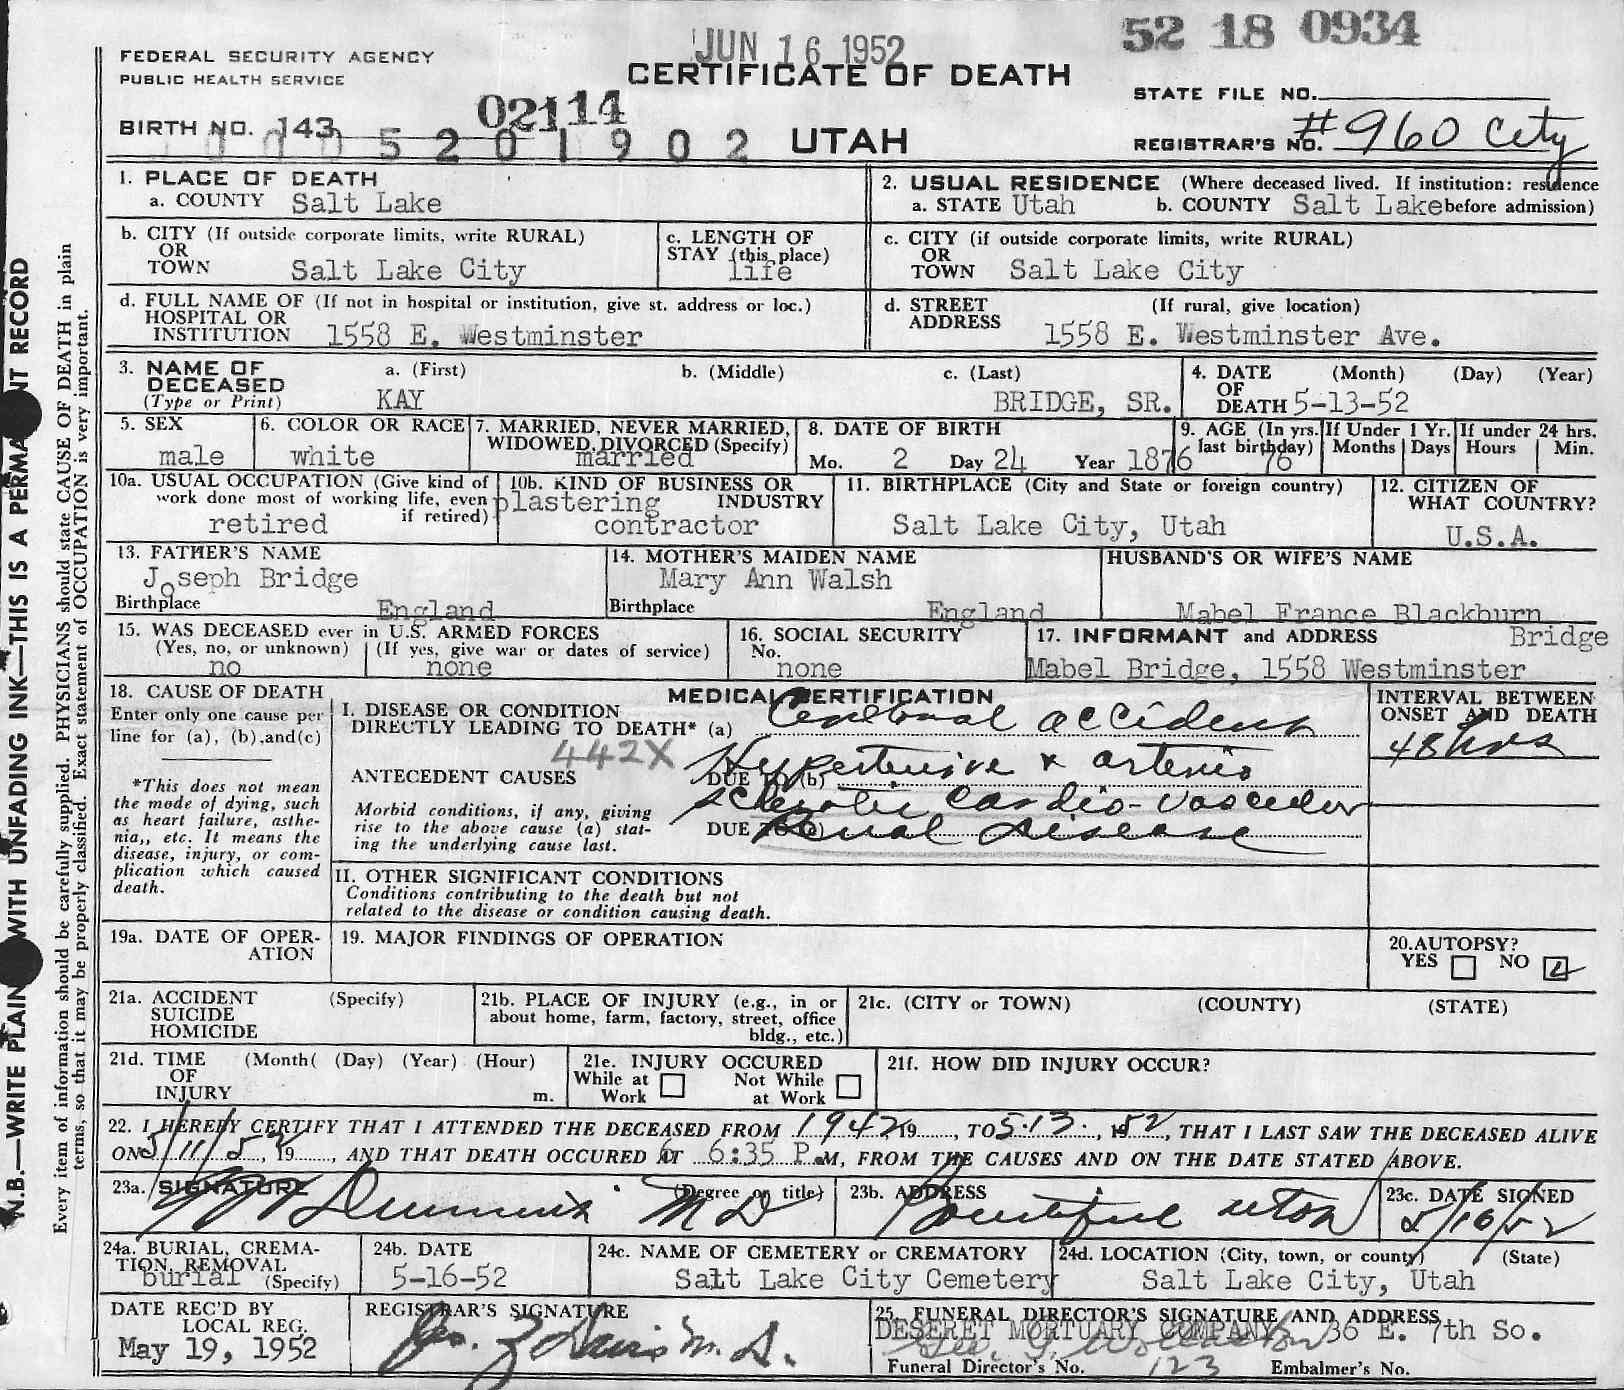 JUN 16 1952
52 18 0934
FEDERAL SECURITY AGENCY
PUBLIC HEALTH SERVICE
CERTIFICATE OF DEATH
STATE FILE NO.
02114
BIRTH NO. 143
5 2 0 1 9 0 2
UTAH
REGISTRAR'S NO. #960 City
1. PLACE OF DEATH
a. COUNTY Salt Lake
2. USUAL RESIDENCE (Where deceased lived. If institution: residence
a. STATE Utah b. COUNTY Salt Lake before admission)
b. CITY (If outside corporate limits, write RURAL)
OR
TOWN Salt Lake City
c. LENGTH OF
STAY (this place)
life
c. CITY (if outside corporate limits, write RURAL)
OR
TOWN Salt Lake City
d. FULL NAME OF (If not in hospital or institution, give st. address or loc.)
HOSPITAL OR
INSTITUTION 1558 E. Westminster
d. STREET (If rural, give location)
ADDRESS 1558 E. Westminster Ave.
3. NAME OF DECEASED
(Type or Print)
a. (First) b. (Middle) c. (Last)
KAY BRIDGE, SR.
4. DATE (Month) (Day) (Year)
OF
DEATH 5-13-52
5. SEX
male
6. COLOR OR RACE
white
7. MARRIED, NEVER MARRIED,
WIDOWED, DIVORCED (Specify)
married
8. DATE OF BIRTH
Mo. 2 Day 24 Year 1876
9. AGE (In yrs.
last birthday)
76
If Under 1 Yr.
Months Days
If under 24 hrs.
Hours Min.
10a. USUAL OCCUPATION (Give kind of
work done most of working life, even
if retired)
retired
10b. KIND OF BUSINESS OR
plastering INDUSTRY
contractor
11. BIRTHPLACE (City and State or foreign country)
Salt Lake City, Utah
12. CITIZEN OF
WHAT COUNTRY?
U.S.A.
13. FATHER'S NAME
Joseph Bridge
Birthplace England
14. MOTHER'S MAIDEN NAME
Mary Ann Walsh
Birthplace England
HUSBAND'S OR WIFE'S NAME
Mabel France Blackburn
Bridge
15. WAS DECEASED ever in U.S. ARMED FORCES
(Yes, no, or unknown) (If yes, give war or dates of service)
no none
16. SOCIAL SECURITY
No.
none
17. INFORMANT and ADDRESS
Mabel Bridge, 1558 Westminster
18. CAUSE OF DEATH
Enter only one cause per
line for (a), (b), and (c)
*This does not mean
the mode of dying, such
as heart failure, asthe-
nia,, etc. It means the
disease, injury, or com-
plication which caused
death.
MEDICAL CERTIFICATION
I. DISEASE OR CONDITION
DIRECTLY LEADING TO DEATH* (a) Cerebral accident
442X
ANTECEDENT CAUSES
DUE TO (b) Hypertensive & arterio
sclerotic cardio-vascular
Morbid conditions, if any, giving
rise to the above cause (a) stat-
ing the underlying cause last.
DUE TO (c) Renal disease
INTERVAL BETWEEN
ONSET AND DEATH
48 hrs
II. OTHER SIGNIFICANT CONDITIONS
Conditions contributing to the death but not
related to the disease or condition causing death.
19a. DATE OF OPER-
ATION
19. MAJOR FINDINGS OF OPERATION
20. AUTOPSY?
YES NO
21a. ACCIDENT (Specify)
SUICIDE
HOMICIDE
21b. PLACE OF INJURY (e.g., in or
about home, farm, factory, street, office
bldg., etc.)
21c. (CITY or TOWN) (COUNTY) (STATE)
21d. TIME (Month( (Day) (Year) (Hour)
OF
INJURY m.
21e. INJURY OCCURED
While at Work
Not While at Work
21f. HOW DID INJURY OCCUR?
22. I HEREBY CERTIFY THAT I ATTENDED THE DECEASED FROM 1942 19....., TO 5.13., 1952, THAT I LAST SAW THE DECEASED ALIVE
ON 5/11/52, 19....., AND THAT DEATH OCCURED AT 6:35 P.M, FROM THE CAUSES AND ON THE DATE STATED ABOVE.
23a. SIGNATURE (Degree or title)
M D
23b. ADDRESS
Bountiful Utah
23c. DATE SIGNED
5/16/52
24a. BURIAL, CREMA-
TION, REMOVAL
burial (Specify)
24b. DATE
5-16-52
24c. NAME OF CEMETERY or CREMATORY
Salt Lake City Cemetery
24d. LOCATION (City, town, or county) (State)
Salt Lake City, Utah
DATE REC'D BY
LOCAL REG.
May 19, 1952
REGISTRAR'S SIGNATURE
M.D.
25. FUNERAL DIRECTOR'S SIGNATURE AND ADDRESS
DESERET MORTUARY COMPANY 36 E. 7th So.
Funeral Director's No. 123 Embalmer's No.
N.B.—WRITE PLAIN WITH UNFADING INK—THIS IS A PERMA NT RECORD
Every item of information should be carefully supplied. PHYSICIANS should state CAUSE OF DEATH in plain
terms, so that it may be properly classified. Exact statement of OCCUPATION is very important.